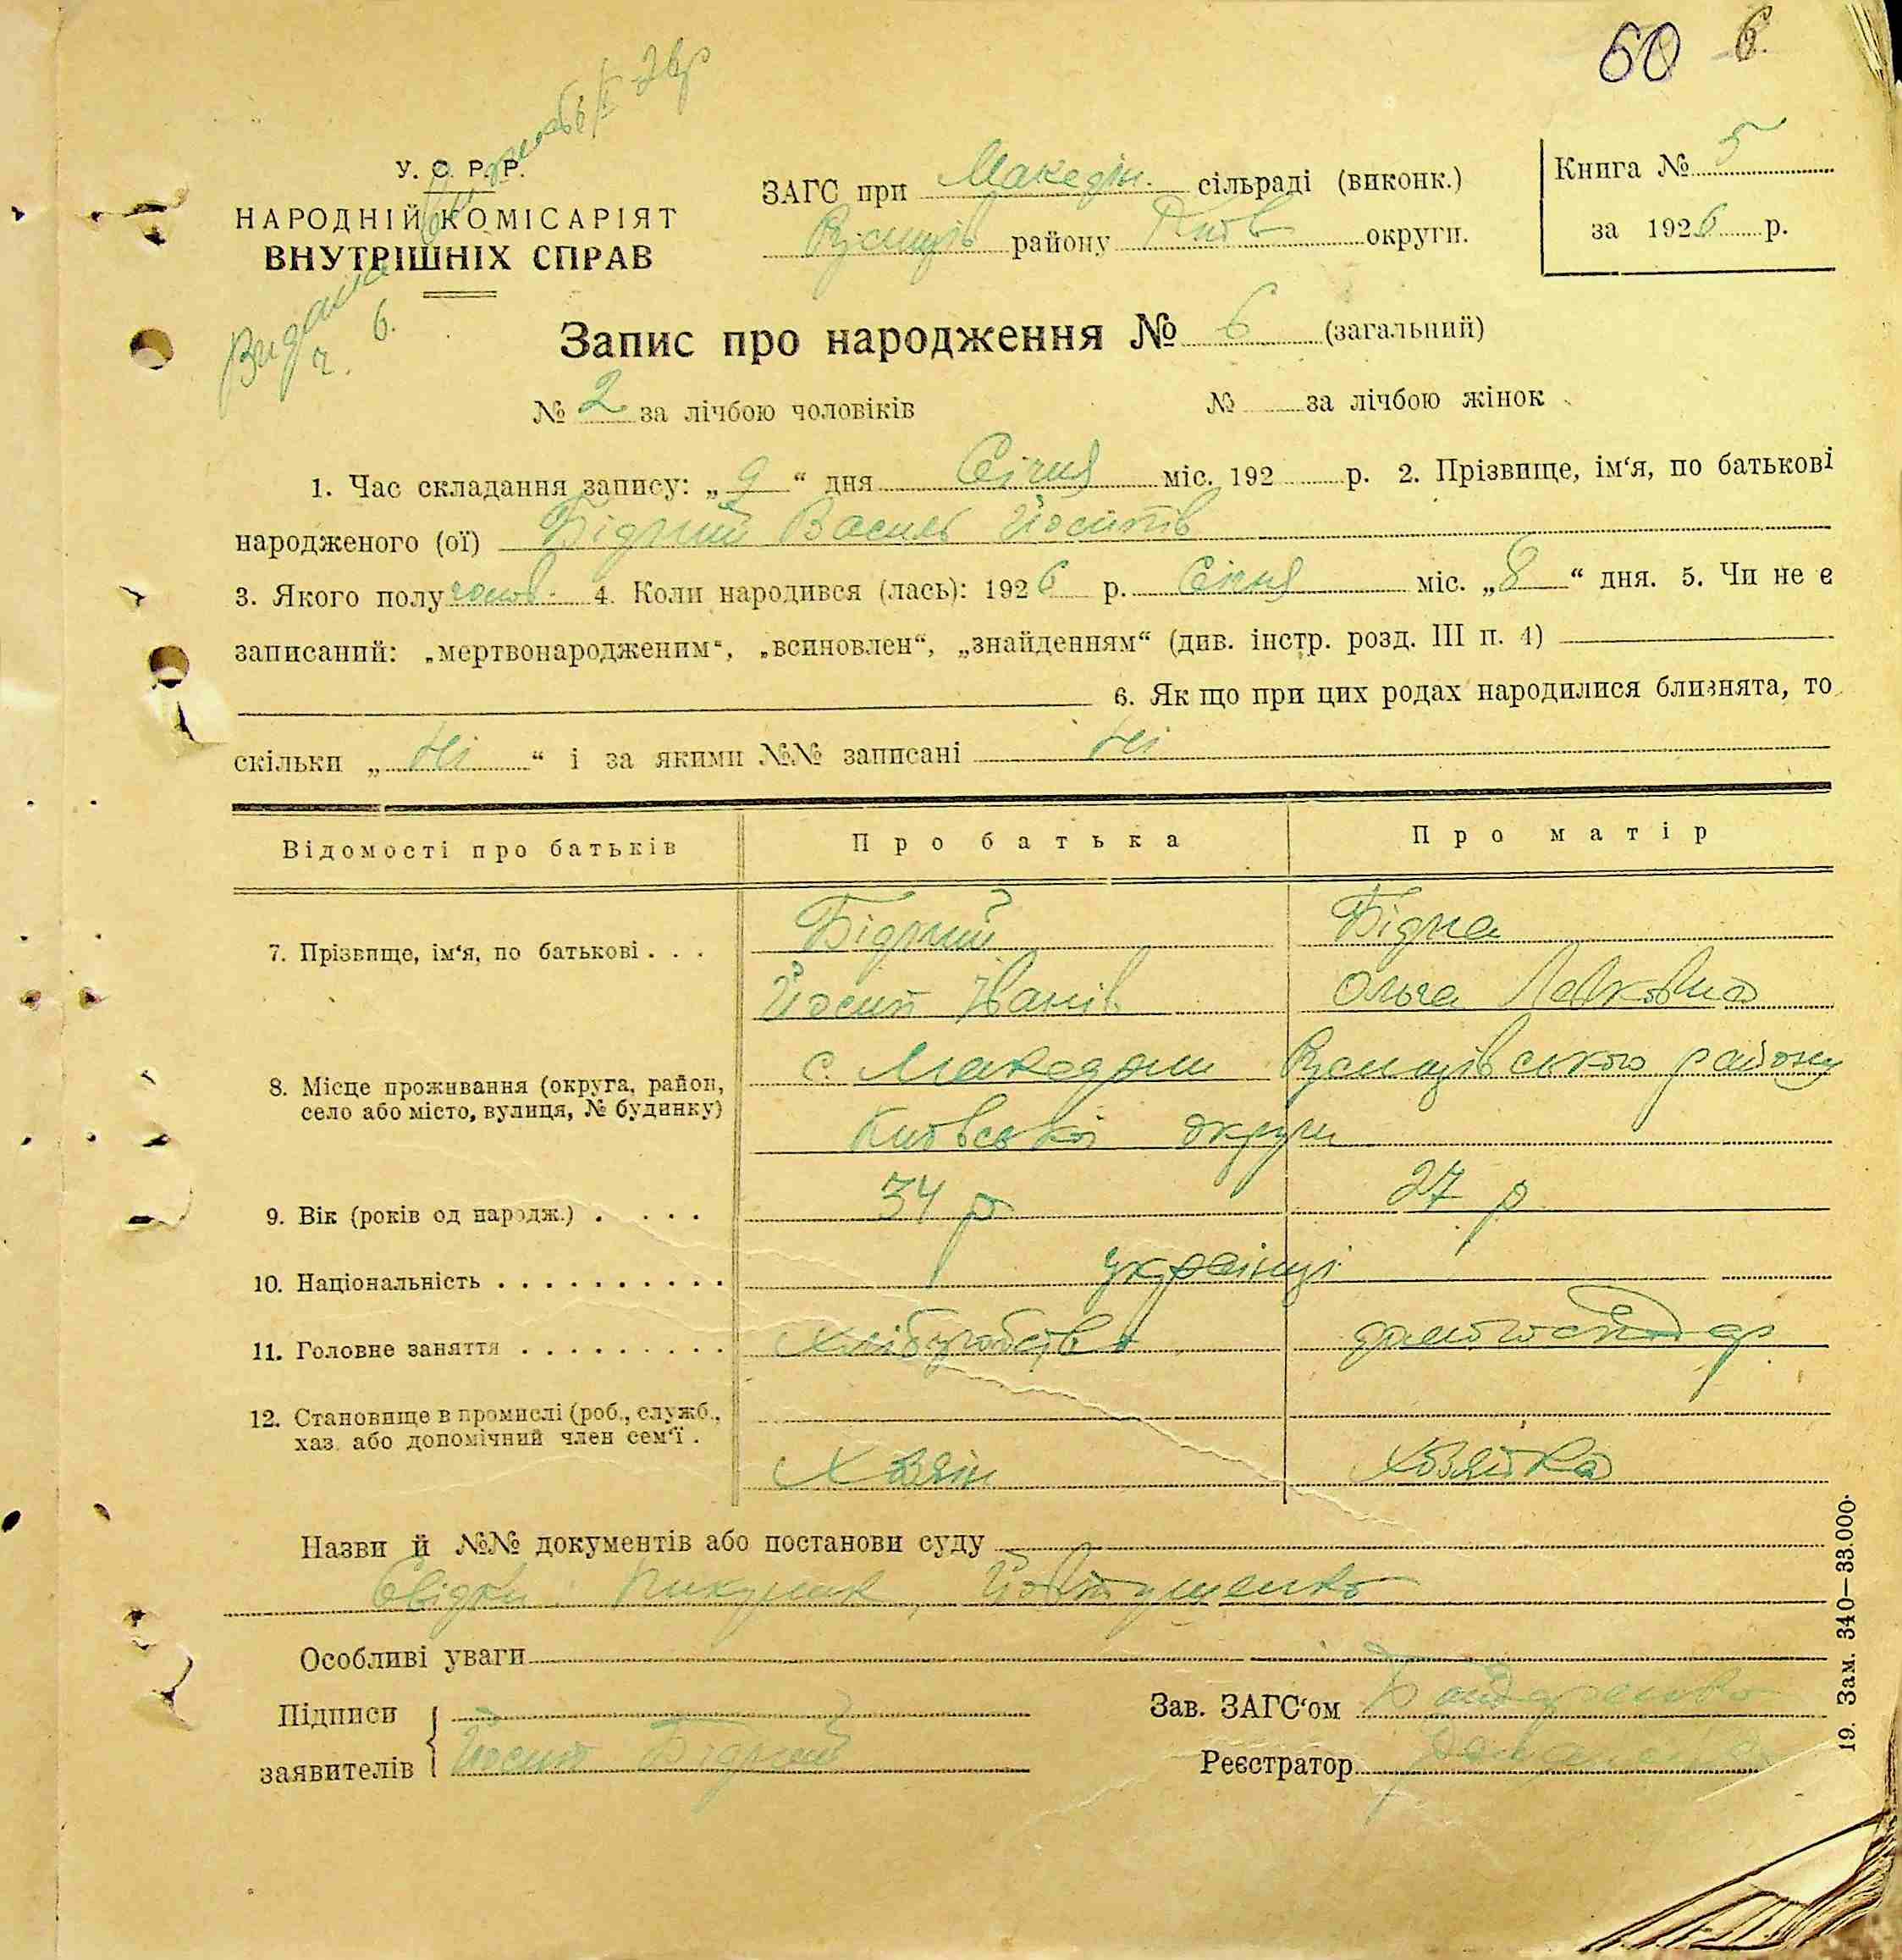 50 6.
У. С. Р. Р.
НАРОДНІЙ КОМІСАРІЯТ
ВНУТРІШНІХ СПРАВ
Видана
ч. 6.
ЗАГС при Македон. сільраді (виконк.)
Ржищів району Київ округи.
Книга № 5
за 1926 р.
Запис про народження № 6 (загальний)
№ 2 за лічбою чоловіків № за лічбою жінок
1. Час складання запису: „ 9 “ дня Січня міс. 192 р. 2. Прізвище, ім‘я, по батькові
народженого (ої) Бідний Василь Йосипів
3. Якого полу чолов. 4. Коли народився (лась): 1926 р. Січня міс. „ 8 “ дня. 5. Чи не є
записаний: „мертвонародженим“, „всиновлен“, „знайденням“ (див. інстр. розд. III п. 4)
6. Як що при цих родах народилися близнята, то
скільки „ Ні “ і за якими №№ записані Ні
Відомості про батьків Про батька Про матір
7. Прізвище, ім‘я, по батькові . . . Бідний Бідна
Йосип Іванів Ольга Павловна
8. Місце проживання (округа, район, село або місто, вулиця, № будинку) с. Македони Ржищівського району
Київської округи
9. Вік (років од народж.) . . . . 34 р 27 р
10. Національність . . . . . . . . . . українці
11. Головне заняття . . . . . . . . . хліборобство домогосподар
12. Становище в промислі (роб., служб.,
хаз. або допомічний член сем‘ї . Хазяін Хозяйка
Назви й №№ документів або постанови суду
Свідки: Пикулик, Йовтушенко
Особливі уваги
Підписи
заявителів Йосип Бідний
Зав. ЗАГС‘ом Бондаренко
Реєстратор
19. Зам. 340—33.000.